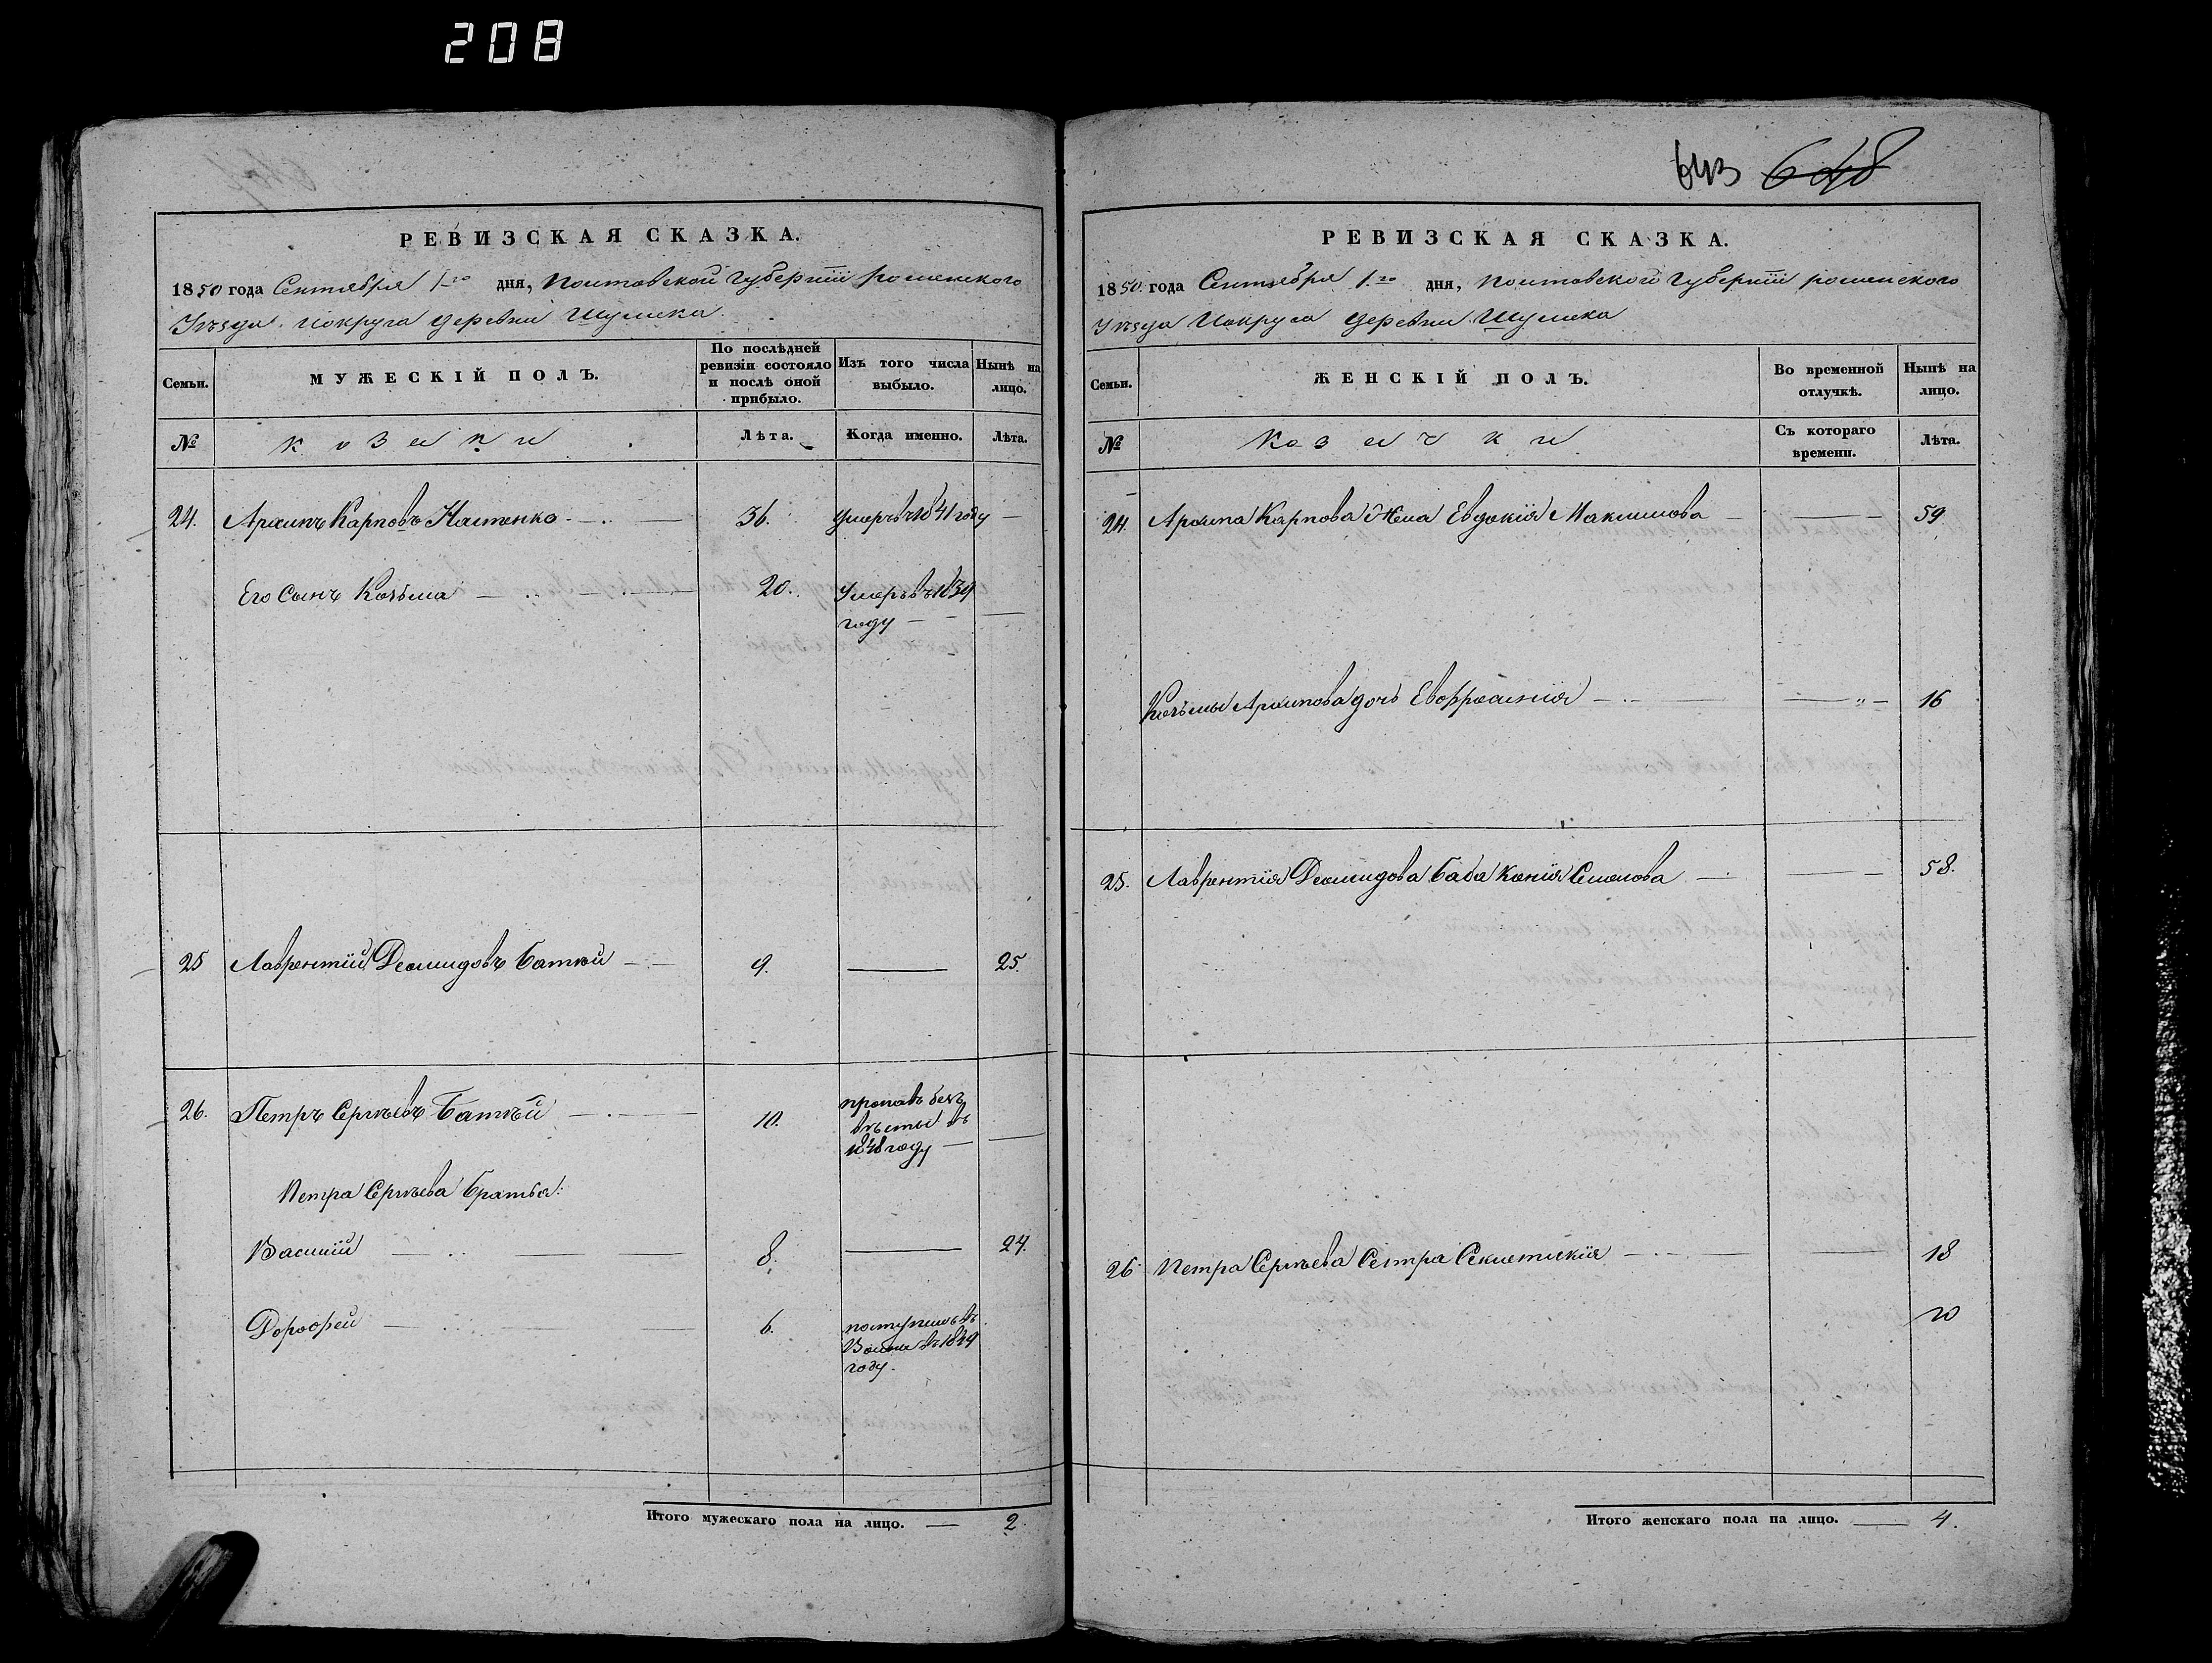 208
643 648
РЕВИЗСКАЯ СКАЗКА.
1850 года Сентября 1го дня, Полтавской Губернїи роменского
Уѣзда Иокруга деревни Шумска
Семьи.
МУЖЕСКІЙ ПОЛЪ.
По послѣдней ревизіи состояло и послѣ оной прибыло.
Изъ того числа выбыло.
Нынѣ на лицо.
№
Козаки
Лѣта.
Когда именно.
Лѣта.
24. Архипъ Карповъ 36. Умеръ в 1841 году —
Его Сынъ Козьма 20. Умеръ в 1839
году —
25 Лаврентїй Деомидовъ Баткѣй 9. — 25.
26. Петръ Сергѣевъ Баткѣй 10. пропавъ безъ
вѣсты въ
1848 году —
Петра Сергѣева братья:
Василїй 8. — 24.
Дорофей 6. поступилъ въ
1849
году.
Итого мужескаго пола на лицо. — 2
РЕВИЗСКАЯ СКАЗКА.
1850. года Сентября 1.го дня, Полтавской Губернїи роменского
Уѣзда Иокруга деревни Шумска
Семьи.
ЖЕНСКІЙ ПОЛЪ.
Во временной отлучкѣ.
Нынѣ на лицо.
№
Козачки
Съ котораго времени.
Лѣта.
24. Архипа Карпова Жена Евдокїя Максимова — 59
Козьмы Архипова дочь Евфросинїя — 16
25. Лаврентїя Деомидова баба Семенова — 58.
26 Петра Сергѣева Сестра — 18
20
Итого женскаго пола на лицо. — 4.